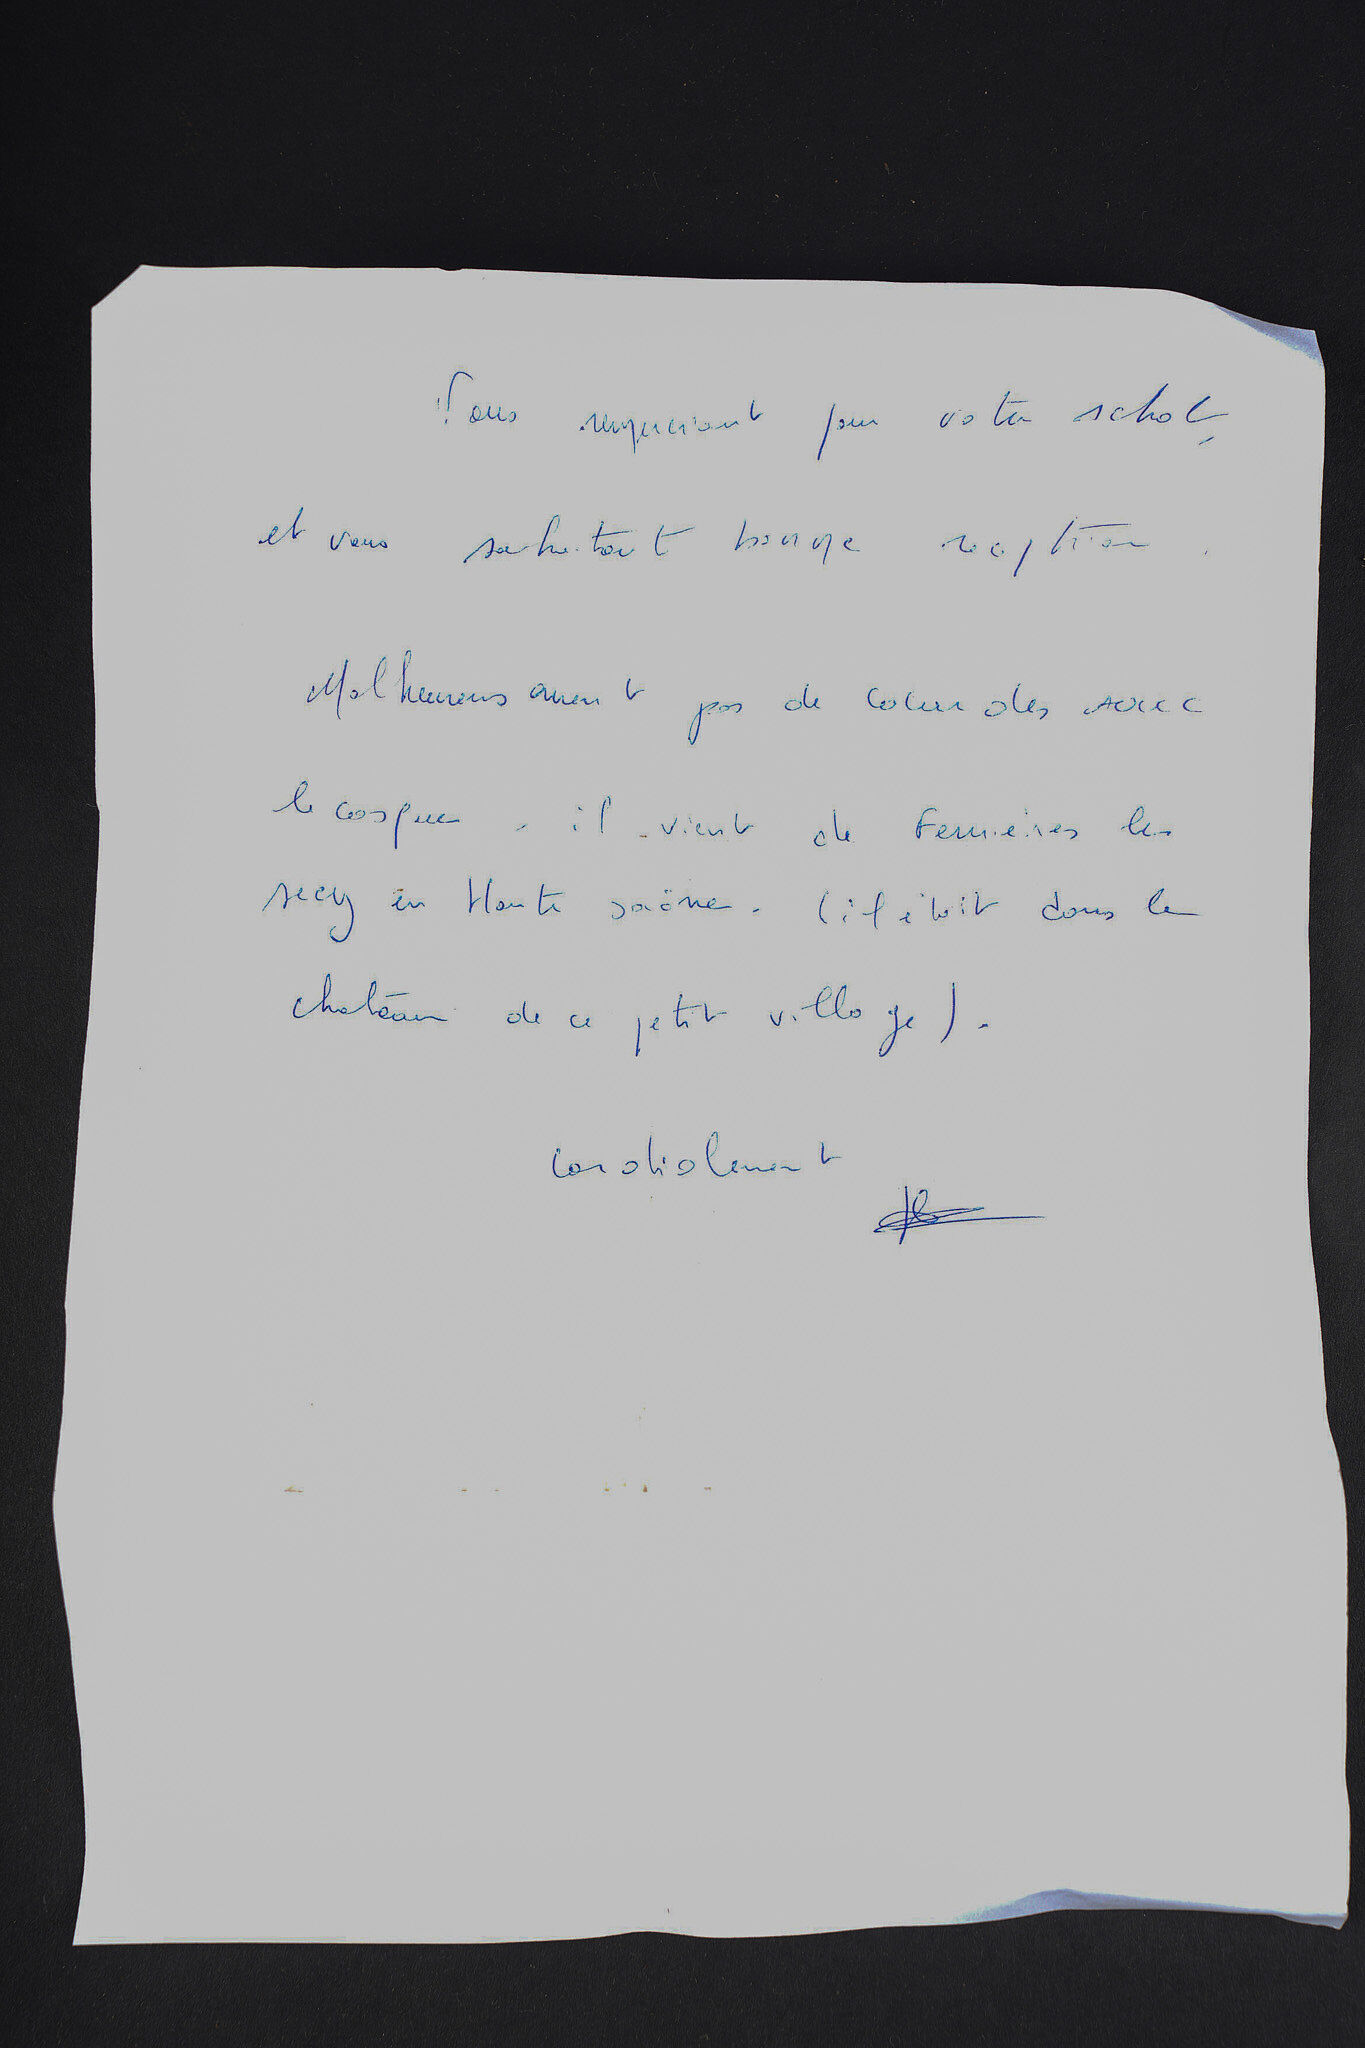 Vous remerciant pour votre achat,
et vous souhaitant bonne reception.
Malheureusement pas de cocardes avec
le casque. il vient de Ferrières les
scey en Haute saône. (il était dans le
chateau de ce petit village).
Cordialement